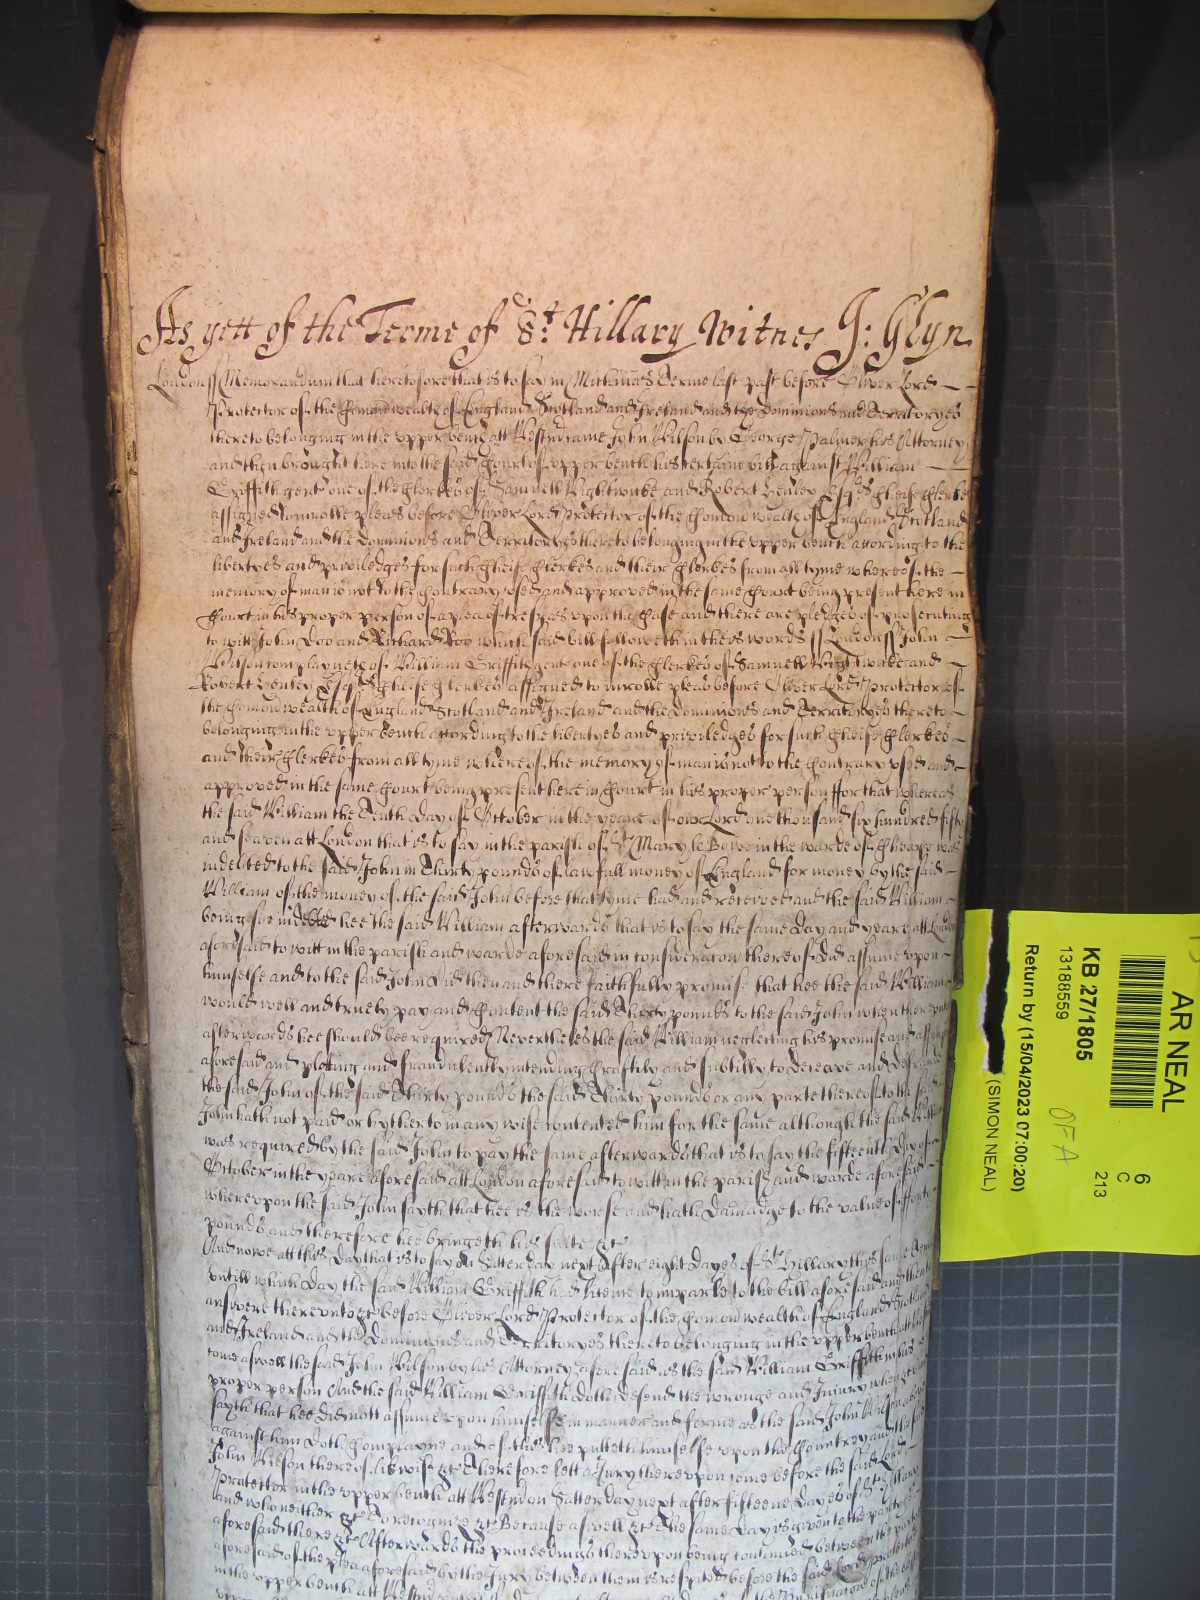 As yett of the Terme of St. Hillary Witnes J: Glyn
London ss Memorandum that heretofore that is to say in Michmas Terme last past before Oliver Lord
Protector of the Comonwealth of England Scotland and Ireland and the Dominions and Territoryes
thereto belonging in the upper bench att Westm came John Wilson by George Palmer his Attorney
and then brought here into the said Court of upper bench his certaine bill against William
Griffith gent one of the Clerkes of Samuell Wightwicke and Robert Henley Esqrs Cheife Clerke
assigned to inrolle pleas before Oliver Lord Protector of the Comonwealth of England Scotland
and Ireland and the Dominions and Territoryes thereto belonging in the upper bench according to the
libertyes and priviledges for such Cheife Clerkes and their Clerkes from all tyme whereof the
memory of man is not to the Contrary used and approved in the same Court being present here in
Court in his proper person of a plea of trespas upon the Case and there are pledges of prosecuting
to witt John Doo and Richard Roo which said bill followeth in theis words ss London ss John
Wilson complayneth of William Griffith gent one of the Clerkes of Samuell Wightwicke and
Robert Henley Esqrs Cheife Clerkes assigned to inrolle pleas before Oliver Lord Protector of
the Comonwealth of England Scotland and Ireland and the Dominions and Territoryes thereto
belonging in the upper bench according to the libertyes and priviledges for such Cheife Clerkes
and their Clerkes from all tyme whereof the memory of man is not to the Contrary used and
approved in the same Court being present here in Court in his proper person ffor that whereas
the said William the Tenth day of October in the yeare of our Lord one thousand six hundred fifty
and seaven att London that is to say in the parish of St Mary le Bowe in the warde of Cheape was
indebted to the said John in Thirty pounds of lawfull money of England for money by the said
William of the money of the said John before that tyme had and received and the said William
being soe indebted hee the said William afterwards that is to say the same day and yeare att London
aforesaid to witt in the parish and warde aforesaid in consideracon thereof did assume upon
himselfe and to the said John did then and there faithfully promise that hee the said William
would well and truely pay and Content the said Thirty pounds to the said John when thereunto
afterwards hee should bee required Neverthelesse the said William neglecting his promise and
aforesaid and plotting and fraudulently intending Craftily and subtilly to deceave and defraude
the said John of the said Thirty pounds the said Thirty pounds or any parte thereof to the said
John hath not paid or hytherto in any wise contented him for the same although the said William
was required by the said John to pay the same afterwards that is to say the fifteenth day of
October in the yeare aforesaid att London aforesaid to witt in the parish and warde aforesaid
whereupon the said John sayth that hee is the worse and hath damadge to the value of fforty
pounds and therefore hee bringeth his suite &c
And nowe att this day that is to say on Satterday next After eight dayes of St Hillary this same Terme
untill which day the said William Griffith had licence to imparle to the bill aforesaid and then to
answere thereunto &c before Oliver Lord Protector of the Comonwealth of England Scotland
and Ireland and the Dominions and Territoryes thereto belonging in the upper bench att
come aswell the said John Wilson by his Attorney aforesaid as the said William Griffith in his
proper person And the said William Griffith doth defend the wronge and Injury when &c and
sayth that hee did nott assume upon himselfe in manner and forme as the said John Wilson above
against him doth Complayne and of this hee putteth himselfe upon the Countrey and the said
John Wilson thereof likewise &c Therefore lett a Jury thereupon come before the said Lord
Protector in the upper bench att Westm on Satterday next after fifteene dayes of St Hillary
and who neither &c to recognize &c Because aswell &c The same day is given to the partyes
aforesaid there &c Afterwards the proceedings thereupon being continued betweene the partyes
aforesaid of the plea aforesaid by the Jury betweene them is respited before the said Lord Protector
in the upper bench att Westm
AR NEAL
KB 27/1805
13188559
Return by (15/04/2023 07:00:20)
(SIMON NEAL)
6
C
213
OFA